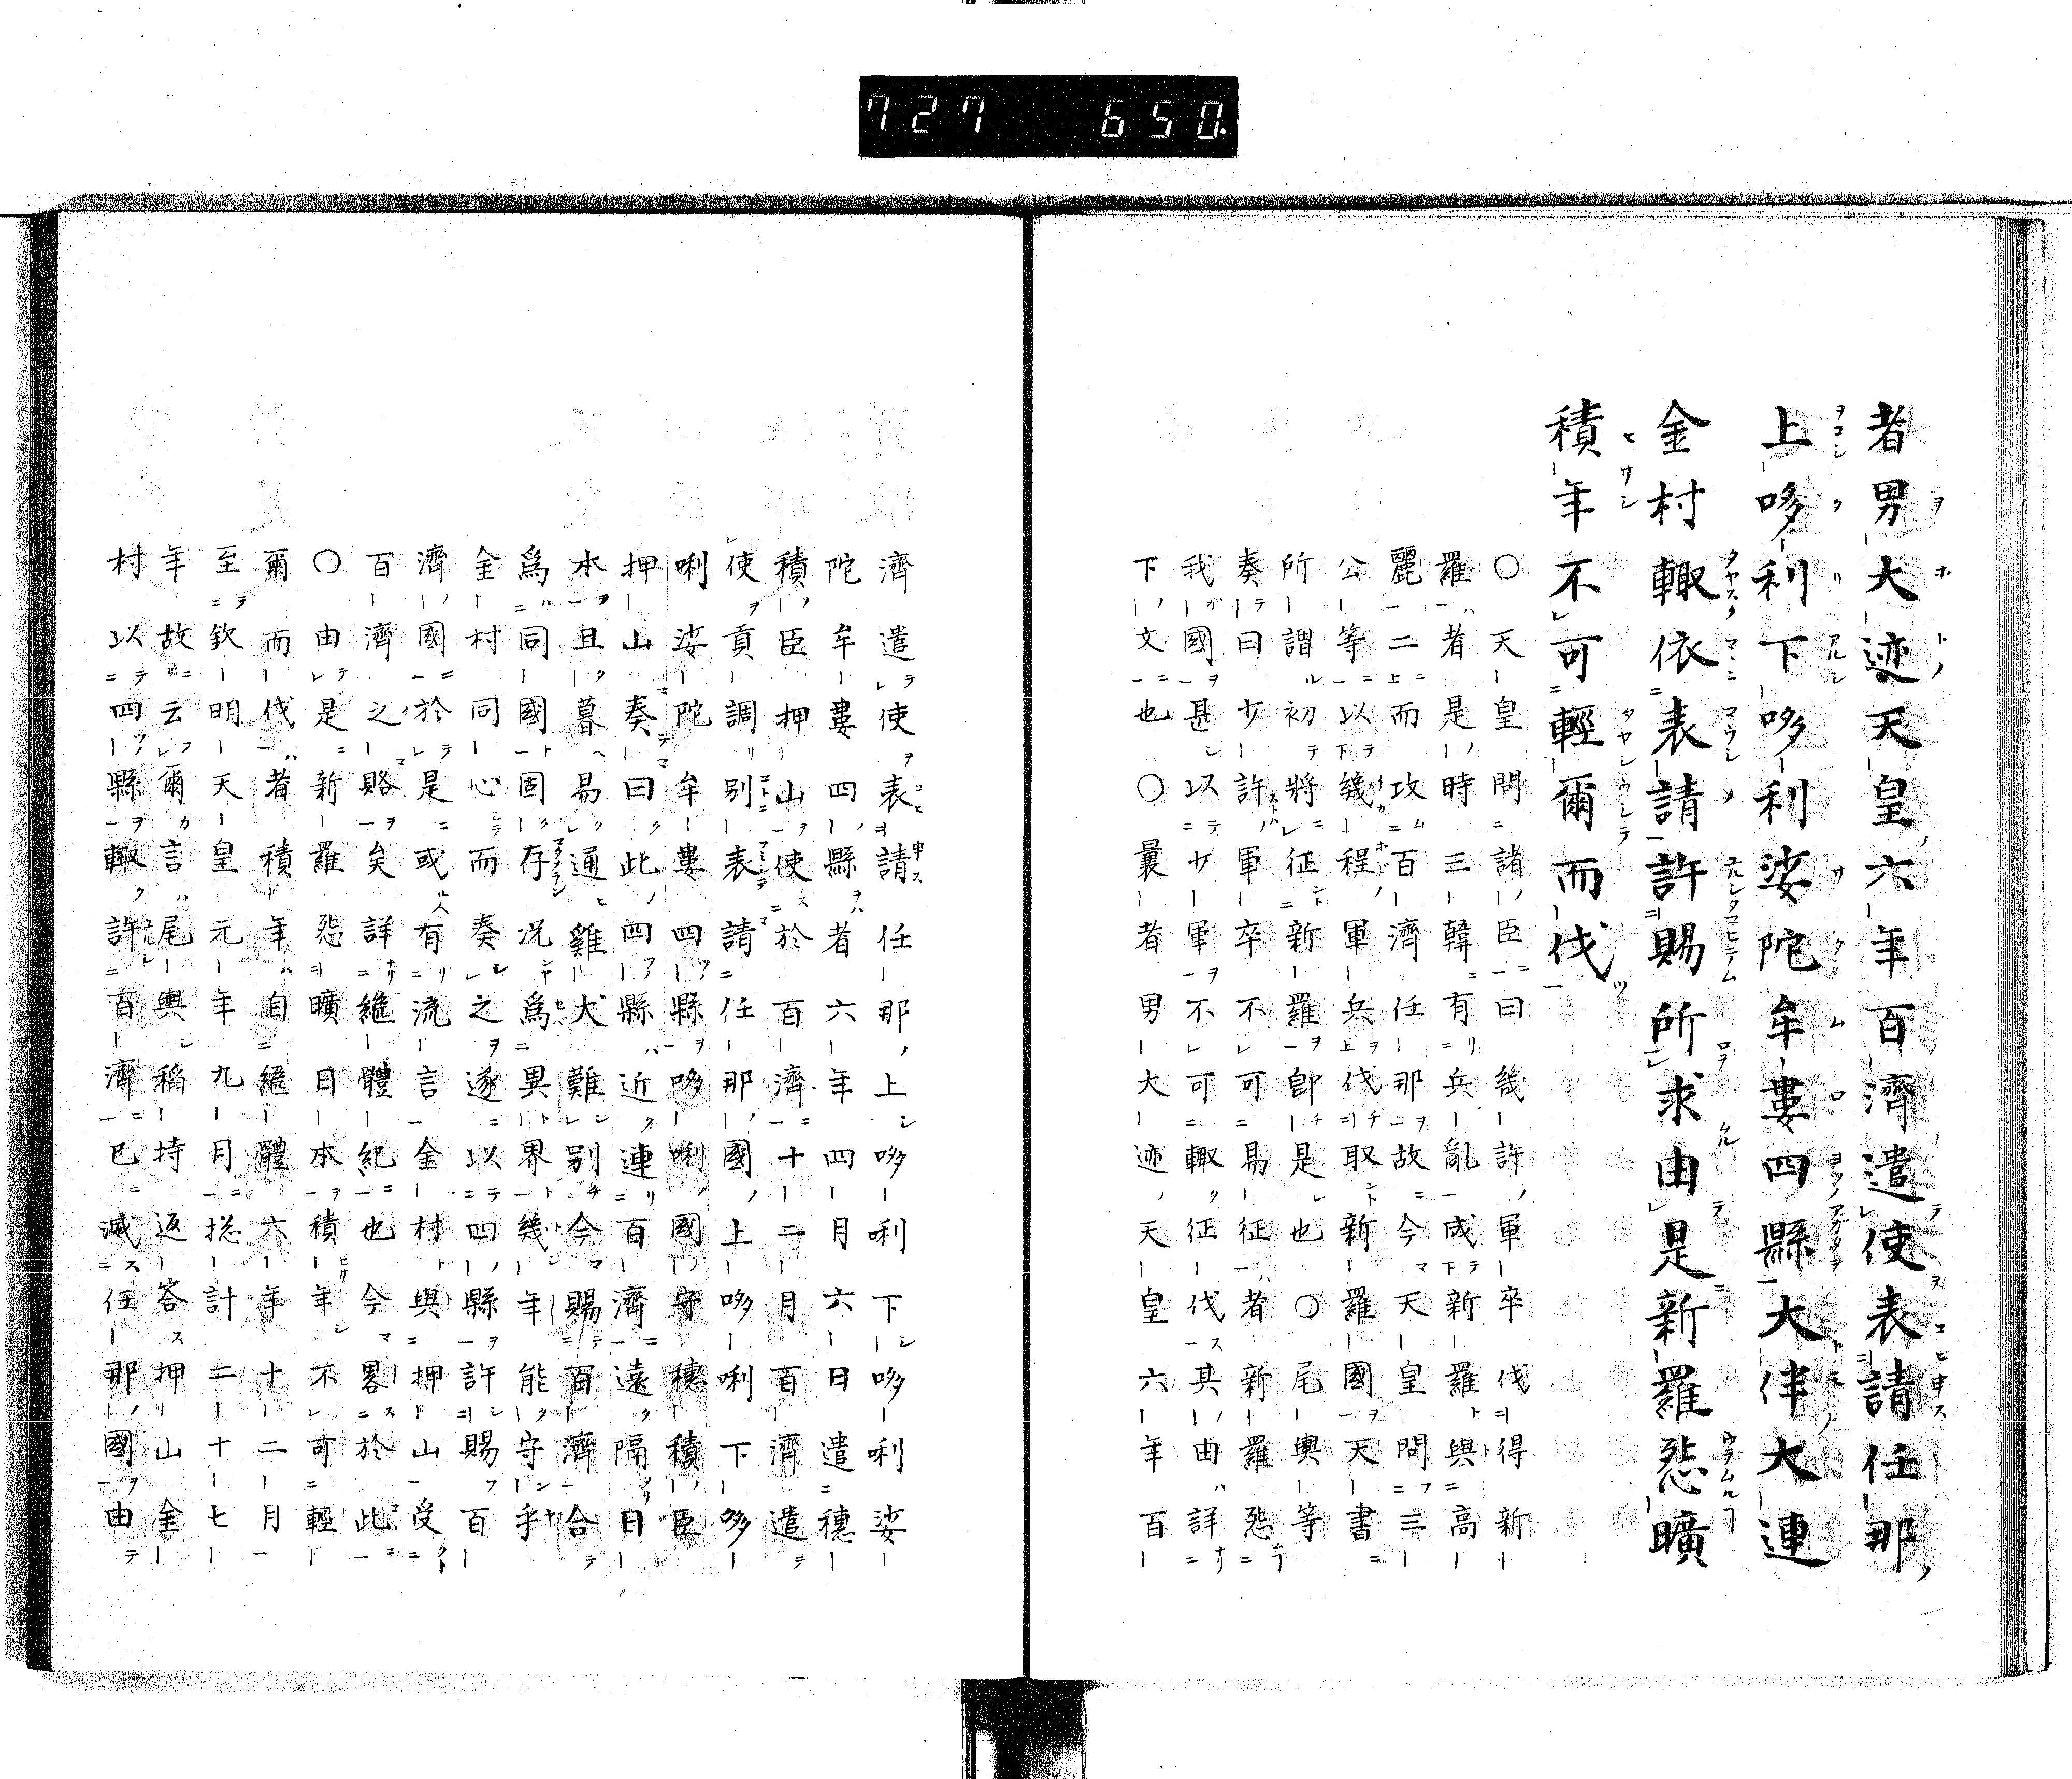 727 650
者男大迹天皇六年百濟遣使表請任那
上哆利下哆利娑陀牟婁四縣大伴大連
金村輙依表請許賜所求由是新羅怨曠
積年不可輕爾而伐
〇天皇問諸臣曰幾許軍卒伐得新
羅者是時三韓有兵亂成新羅與高
麗二而攻百濟任那故今天皇問三
公等以幾程軍兵伐取新羅國天書
所謂初將征新羅卽是也〇尾輿等
奏曰少許軍卒不可易征者新羅怨
我國甚以少軍不可輙征伐其由詳
下文也〇曩者男大迹天皇六年百
濟遣使表請任那上哆唎下哆唎娑
陀牟婁四縣者六年四月六日遣穗
積臣押山使於百濟十二月百濟遣
使貢調別表請任那國上哆唎下哆
唎娑陀牟婁四縣哆唎國守穗積臣
押山奏曰此四縣近連百濟遠隔日
本且暮易通雞犬難別今賜百濟合
爲同國固存況爲異界幾年能守乎
金村同心而奏之遂以四縣許賜百
濟國於是或有流言金村與押山受
百濟之賂矣詳繼體紀也今畧於此
〇由是新羅怨曠日本積年不可輕
爾而伐者積年自繼體六年十二月
至欽明天皇元年九月揔計二十七
年故云爾言尾輿稻持返答押山金
村以四縣輙許百濟已滅任那國由